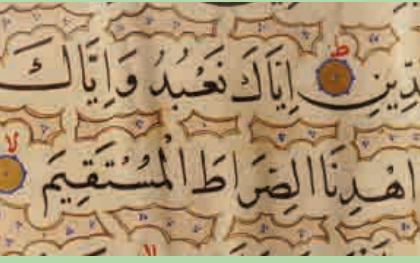 دِّينِ اِيَّاكَ نَعْبُدُ وَاِيَّاكَ
اهْدِنَا الصِّرَاطَ الْمُسْتَقِيمَ